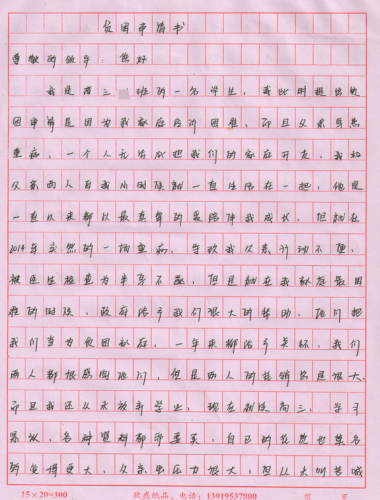 贫困申请书
尊敬的领导：您好
我是高三 班的一名学生，我此时提出贫
困申请是因为我家庭经济困难，而且父亲身患
重病，一个人无法承担我们的家庭开支，我和
父亲两人自我小时候就一直生活在一起，他是
一直以来都以最真挚的爱陪伴我成长，但就在
2014年突然的一场重病，导致我父亲行动不便，
被医生检查为半身不遂，但是就在我家庭最困
难的时候，政府给予我们很大的帮助，他们把
我们当为贫困家庭，一年来都给予关怀，我们
两人都很感谢他们，但是两人的花销总是很大，
而且我还从未放弃学业，现在就读高三，学习
紧张，各种资料都很重要，自己的花费也莫名
的变得更大，父亲 压力很大，但从未叫苦喊
15×20=300 欣盛纸品，电话：13919537800 第 页